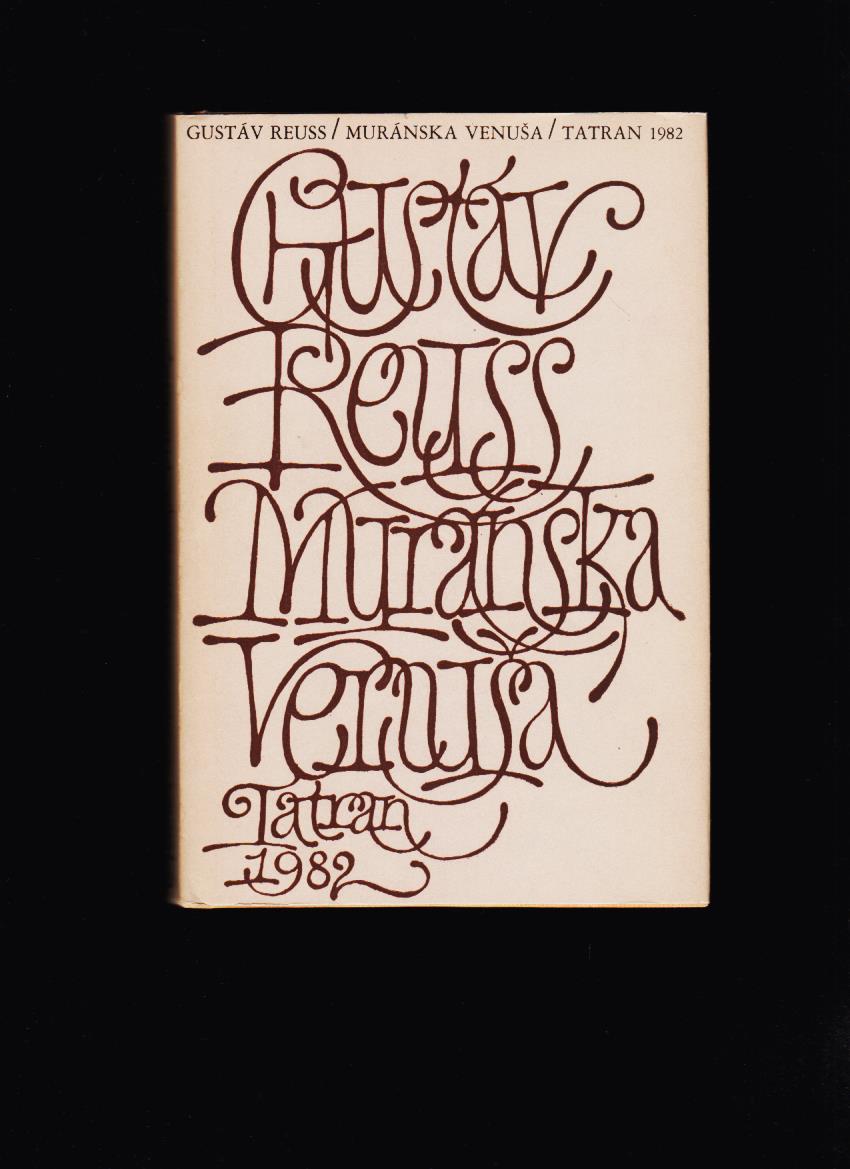 GUSTÁV REUSS / MURÁNSKA VENUŠA / TATRAN 1982
Gustáv
Reuss
Muránska
Venuša
Tatran
1982